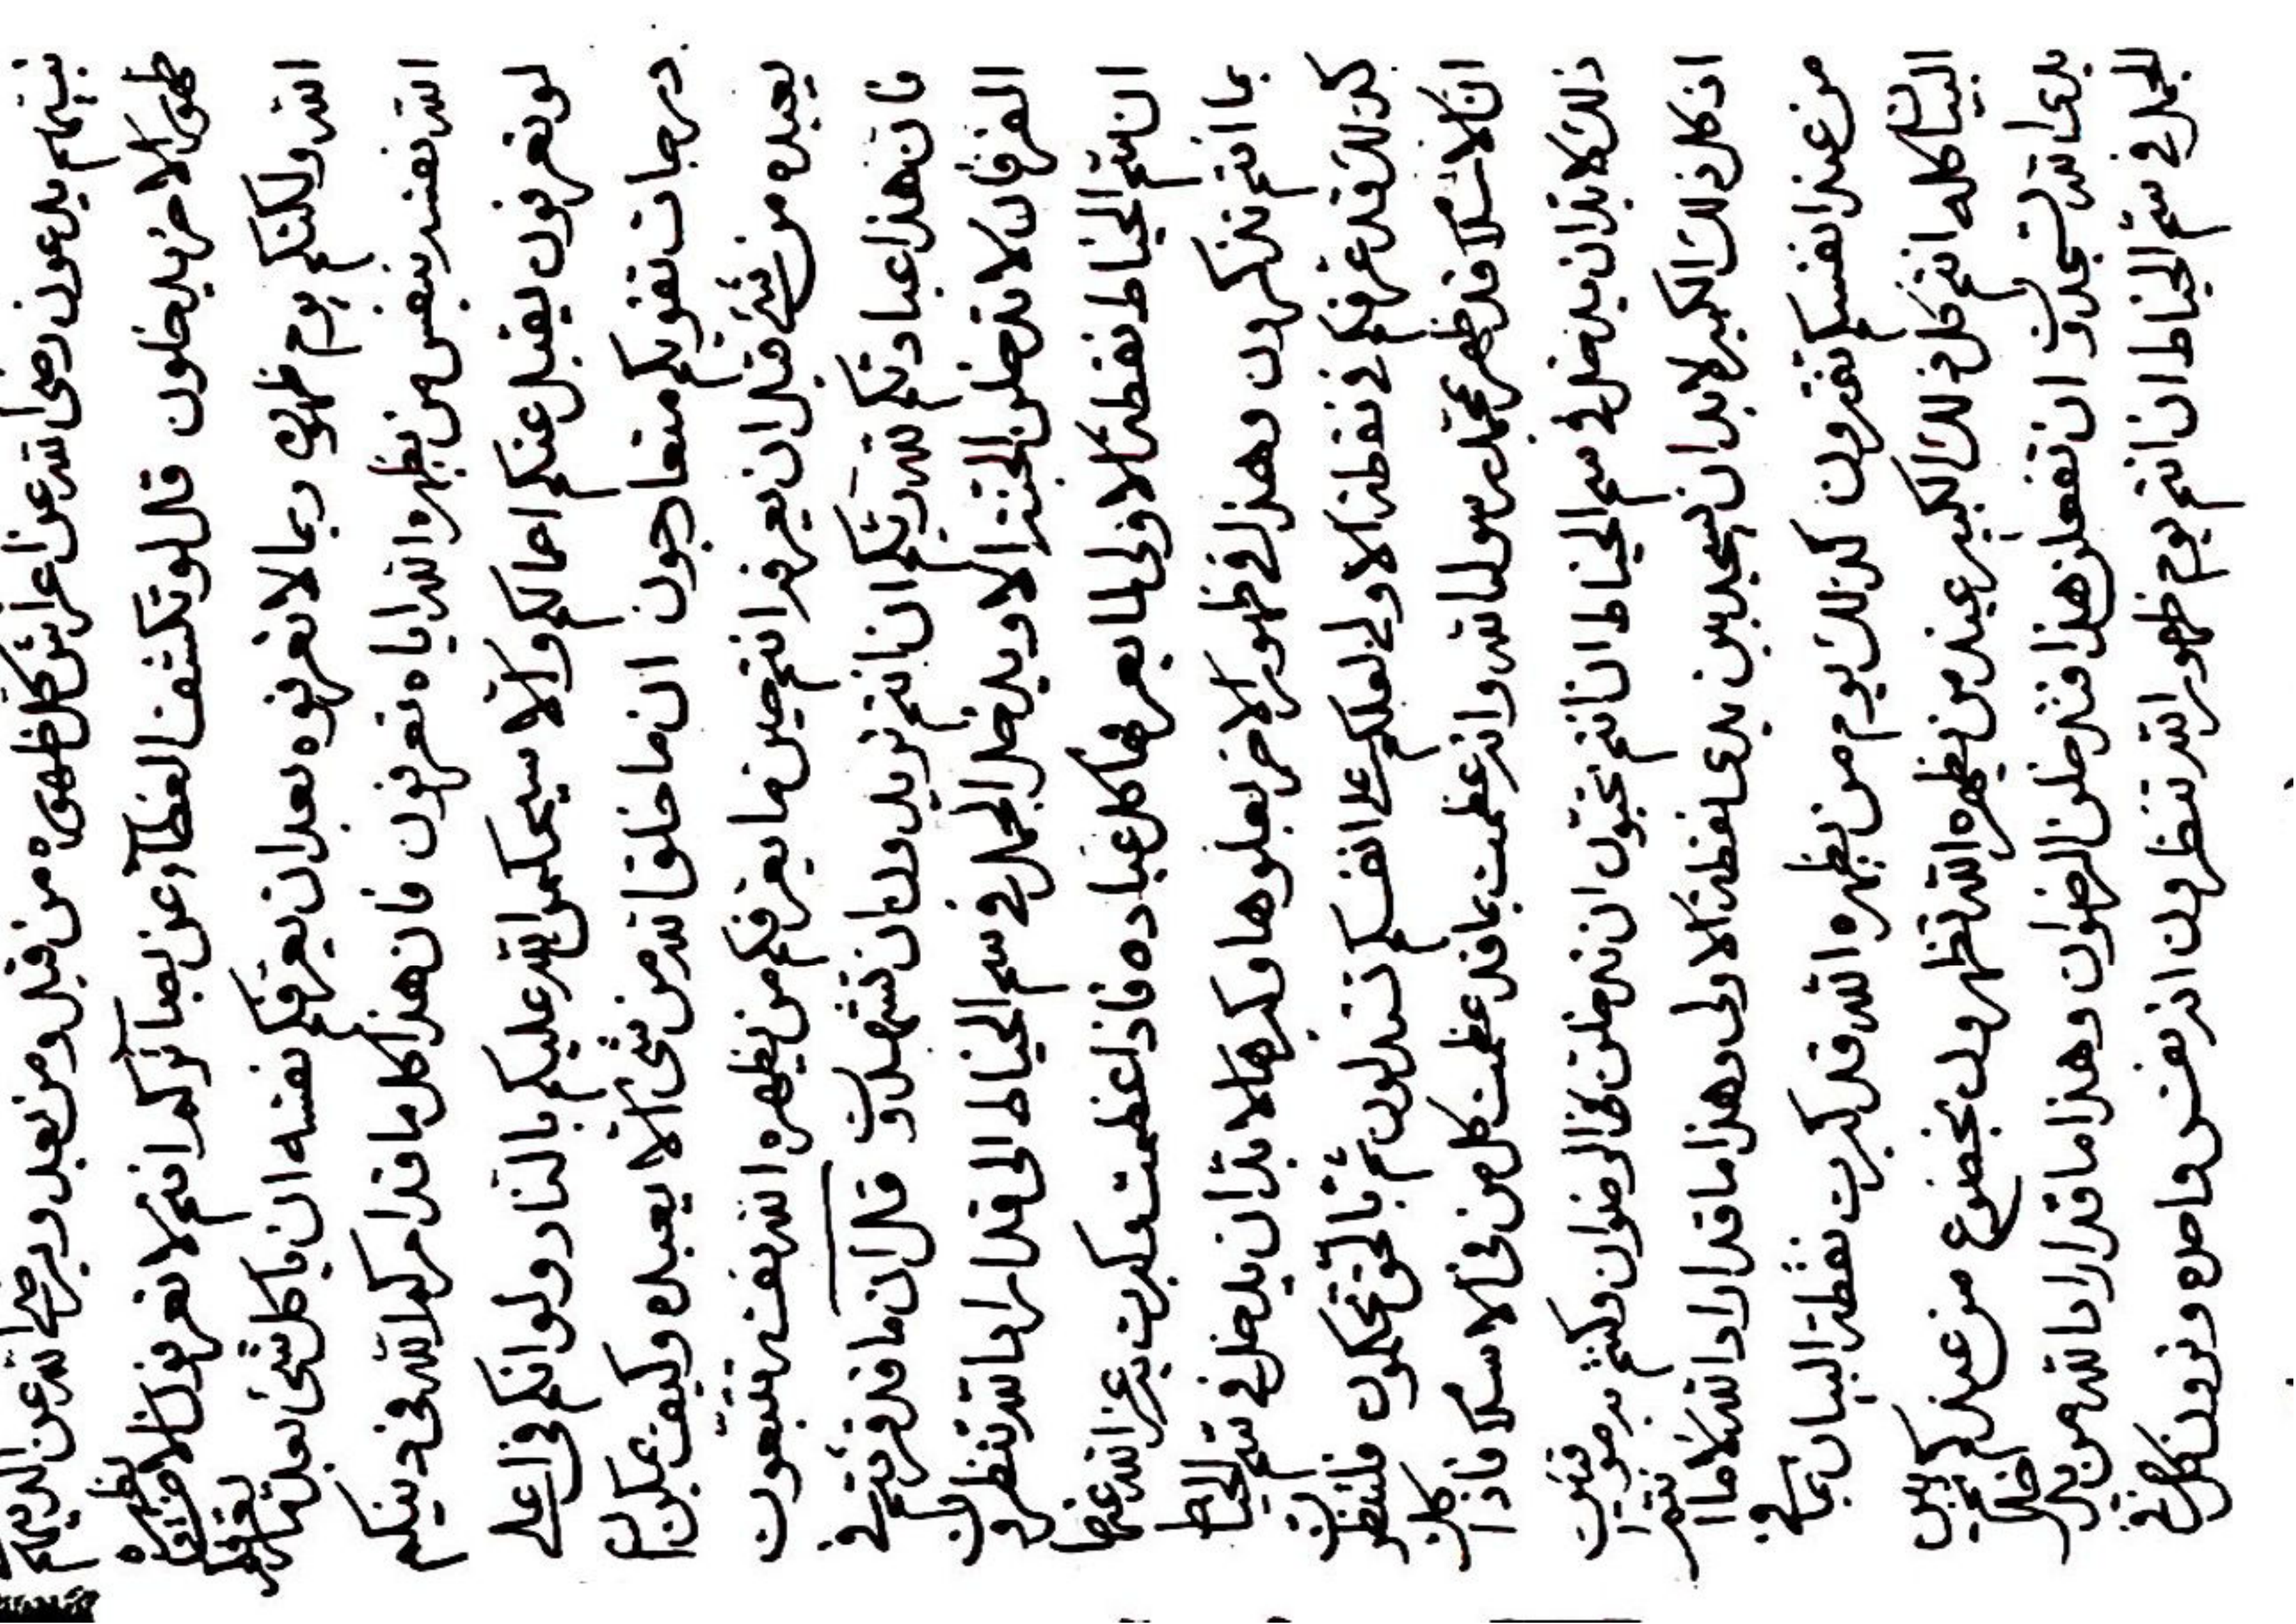 بينهم يدعون رضى الله عن اعراش كل ظهوره من قبل ومن بعد ويرضى الله عن الذينهم
ظهور الاخر يدخلون قل لو تكشفن الغطآء عن بصآئركم انتم لا تعرفون الا من يظهره
الله ولكنكم يوم ظهوره ربما لا تعرفوه بعد ان يعرفكم نفسه ان يا كل شئ
الله نفسه بنفس من يظهره الله اياه تعرفون فان هذا كل ما قد امركم الله في دينكم
لو تعرفون يقبل عنكم اعمالكم والا سيحكمن الله عليكم بالنار ولو انكم في اعلى
درجات تقويكم متعارجون ان ما خلق الله من شئ الا ليعبده وكيف يمكن ان
يعبده من شئ قبل ان يعرفه انتم حين ما يعرفكم من يظهره الله نفسه تتبعون
فان هذا عبادتكم لله ربكم ان انتم تريدون ان تشهدون قل ان ما قد قرئتم في
الفرقان لا تدخلن الجنة الا ويدخل الجمل في سم الخياط قد اراد الله تنظرون
ان سم الخياط نقطة الاولى لما يعرفها كل عباده فاذا عظمت وكبرت بعز الله عندها
بما انتم تذكرون وهذا في ظهور الاخر بعلوها وكبرها لا بد ان يدخل في سم الخياط
كذلك قد عرفكم في نقطة الاولى لعلكم على انفسكم ثم بالحق تحكمون فلتنظرون
ان الاسلام قد ظهر بمحمد رسول الله وانه عظمت بما قد عظمت كل من في الاسلام فاذا كل
ذلك لا بد ان يدخل في سم الخياط ان انتم تحبون ان تدخلن في الرضوان وكنتم به موقنين
اذ كل ذلك الكبر لا بد ان يسجد بين يدي نقطة الاولى وهذا ما قد اراد الله لا ما انتم
من عند انفسكم تفترون كذلك يوم من يظهره الله قد كبرت نقطة البيان بما في
البيان كله انتم كل ذلك الكبير عند من يظهره الله تظهرون بخضوع من عندكم بين
يدي الله لتسجدون ان تفعلن هذا فتدخلن الرضوان وهذا ما قد اراد الله من يدخل
الجمل في سم الخياط ان انتم يوم ظهور الله تنظرون اذ نفس واحدة وترون كل شئ